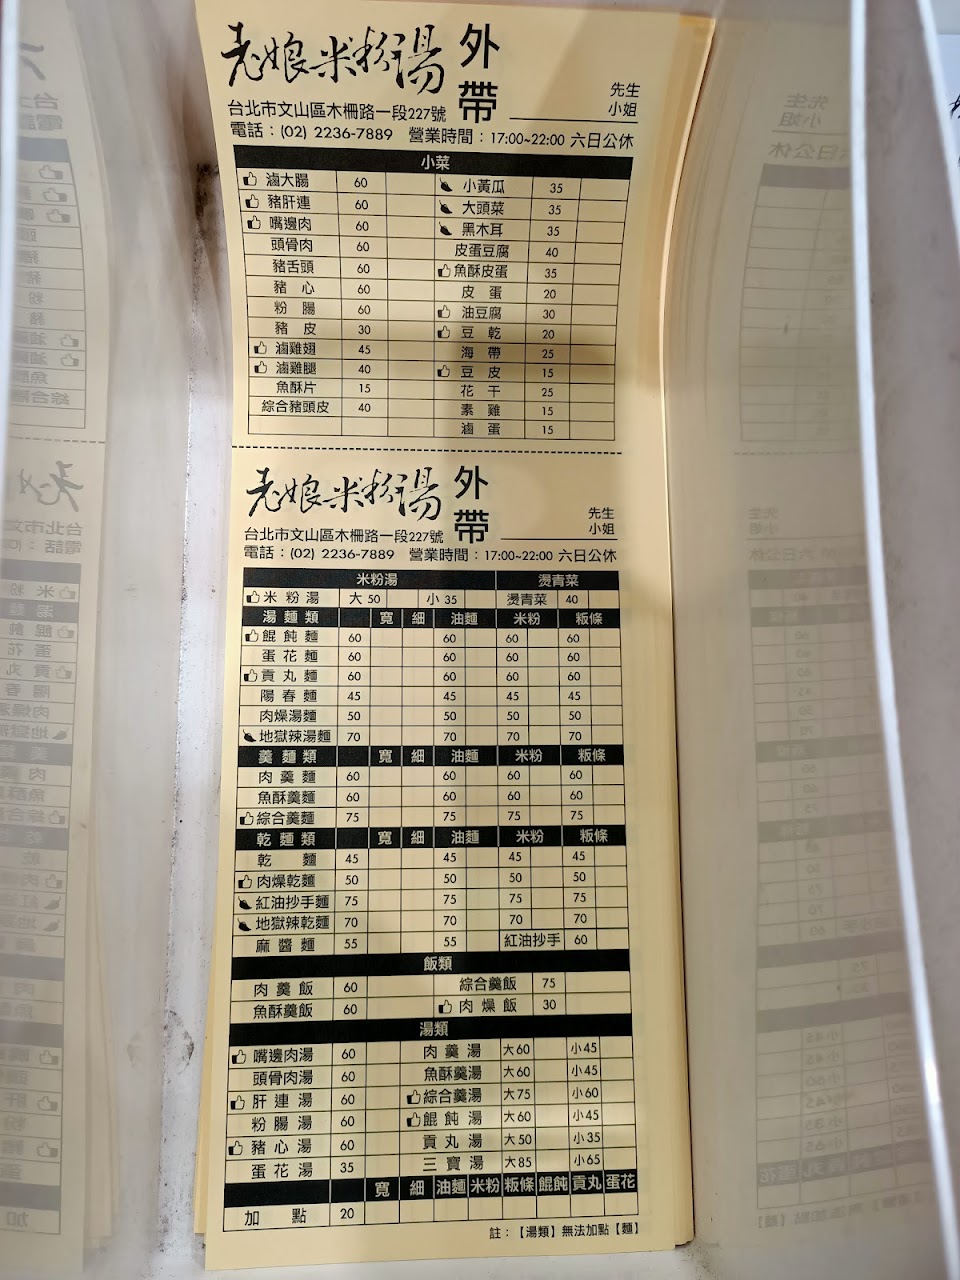 老娘米粉湯 外帶
先生
小姐
台北市文山區木柵路一段227號
電話：(02) 2236-7889 營業時間：17:00~22:00 六日公休
小菜
滷大腸 60 小黃瓜 35
豬肝連 60 大頭菜 35
嘴邊肉 60 黑木耳 35
頭骨肉 60 皮蛋豆腐 40
豬舌頭 60 魚酥皮蛋 35
豬心 60 皮蛋 20
粉腸 60 油豆腐 30
豬皮 30 豆乾 20
滷雞翅 45 海帶 25
滷雞腿 40 豆皮 15
魚酥片 15 花干 25
綜合豬頭皮 40 素雞 15
滷蛋 15
老娘米粉湯 外帶
先生
小姐
台北市文山區木柵路一段227號
電話：(02) 2236-7889 營業時間：17:00~22:00 六日公休
米粉湯 燙青菜
米粉湯 大50 小35 燙青菜 40
湯麵類 寬 細 油麵 米粉 粄條
餛飩麵 60 60 60 60
蛋花麵 60 60 60 60
貢丸麵 60 60 60 60
陽春麵 45 45 45 45
肉燥湯麵 50 50 50 50
地獄辣湯麵 70 70 70 70
羹麵類 寬 細 油麵 米粉 粄條
肉羹麵 60 60 60 60
魚酥羹麵 60 60 60 60
綜合羹麵 75 75 75 75
乾麵類 寬 細 油麵 米粉 粄條
乾麵 45 45 45 45
肉燥乾麵 50 50 50 50
紅油抄手麵 75 75 75 75
地獄辣乾麵 70 70 70 70
麻醬麵 55 55 紅油抄手 60
飯類
肉羹飯 60 綜合羹飯 75
魚酥羹飯 60 肉燥飯 30
湯類
嘴邊肉湯 60 肉羹湯 大60 小45
頭骨肉湯 60 魚酥羹湯 大60 小45
肝連湯 60 綜合羹湯 大75 小60
粉腸湯 60 餛飩湯 大60 小45
豬心湯 60 貢丸湯 大50 小35
蛋花湯 35 三寶湯 大85 小65
寬 細 油麵 米粉 粄條 餛飩 貢丸 蛋花
加點 20
註：【湯類】無法加點【麵】